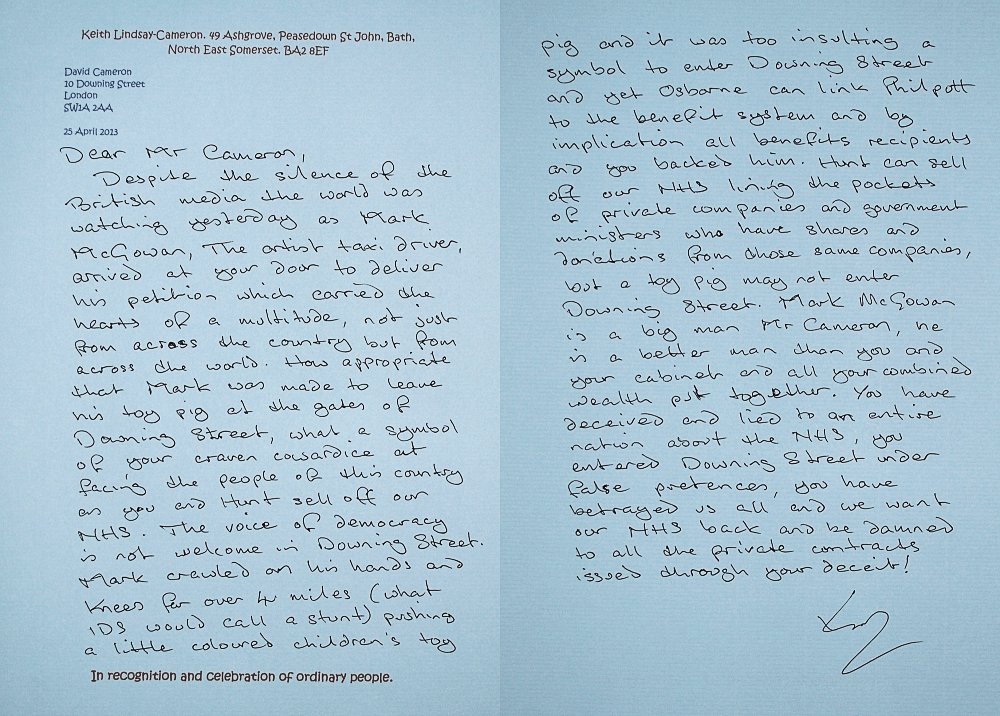 Keith Lindsay-Cameron. 49 Ashgrove, Peasedown St John, Bath,
North East Somerset. BA2 8EF
David Cameron
10 Downing Street
London
SW1A 2AA
25 April 2013
Dear Mr Cameron,
Despite the silence of the
British media the world was
watching yesterday as Mark
McGowan, The artist taxi driver,
arrived at your door to deliver
his petition which carried the
hearts of a multitude, not just
from across the country but from
across the world. How appropriate
that Mark was made to leave
his toy pig at the gates of
Downing Street, what a symbol
of your craven cowardice at
facing the people of this country
as you and Hunt sell off our
NHS. The voice of democracy
is not welcome in Downing Street.
Mark crawled on his hands and
knees for over 4 miles (what
IDS would call a stunt) pushing
a little coloured children's toy
In recognition and celebration of ordinary people.
pig and it was too insulting a
symbol to enter Downing Street
and yet Osborne can link Philpott
to the benefit system and by
implication all benefits recipients
and you backed him. Hunt can sell
off our NHS lining the pockets
of private companies and government
ministers who have shares and
donations from those same companies,
but a toy pig may not enter
Downing Street. Mark McGowan
is a big man Mr Cameron, he
is a better man than you and
your cabinet and all your combined
wealth put together. You have
deceived and lied to an entire
nation about the NHS, you
entered Downing Street under
false pretences, you have
betrayed us all and we want
our NHS back and be damned
to all the private contracts
issued through your deceit!